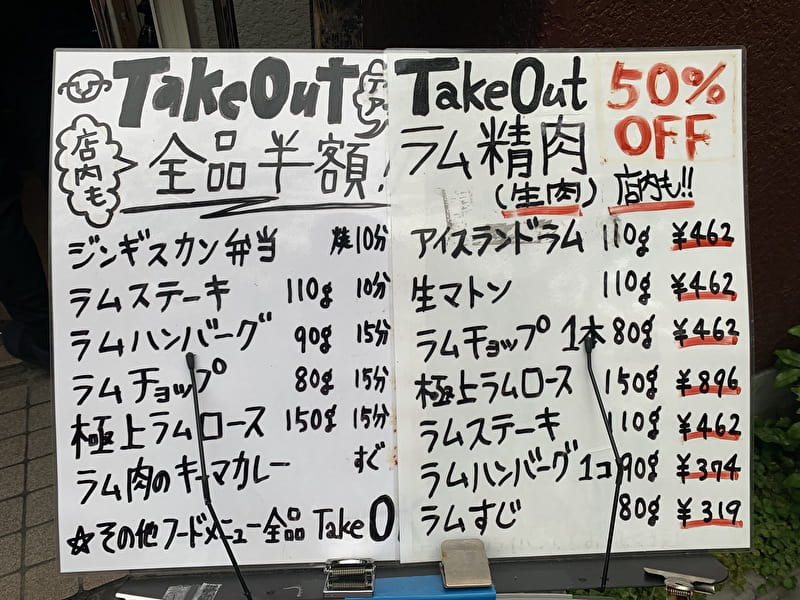 TakeOut
店内も
全品半額!
ジンギスカン弁当 焼10分
ラムステーキ 110g 10分
ラムハンバーグ 90g 15分
ラムチョップ 80g 15分
極上ラムロース 150g 15分
ラム肉のキーマカレー すぐ
☆その他フードメニュー全品 Take O
TakeOut 50% OFF
ラム精肉
(生肉) 店内も!!
アイスランドラム 110g ¥462
生マトン 110g ¥462
ラムチョップ 1本 80g ¥462
極上ラムロース 150g ¥896
ラムステーキ 110g ¥462
ラムハンバーグ 1コ 90g ¥374
ラムすじ 80g ¥319